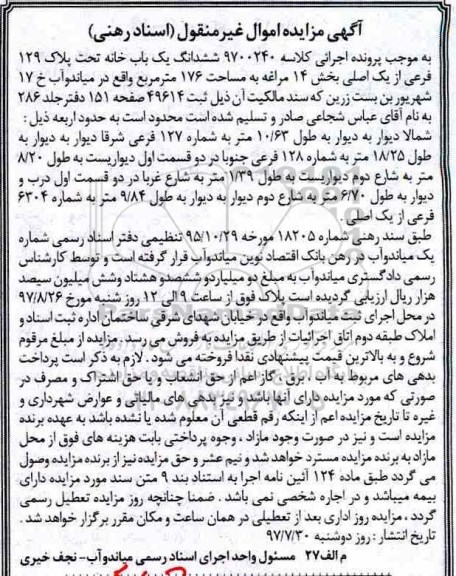 آگهی مزایده اموال غیرمنقول (اسناد رهنی)
به موجب پرونده اجرائی کلاسه ۹۷۰۰۲۴۰ ششدانگ یک باب خانه تحت پلاک ۱۲۹
فرعی از یک اصلی بخش ۱۴ مراغه به مساحت ۱۷۶ مترمربع واقع در میاندوآب خ ۱۷
شهریور بن بست زرین که سند مالکیت آن ذیل ثبت ۴۹۶۱۴ صفحه ۱۵۱ دفترجلد ۲۸۶
به نام آقای عباس شجاعی صادر و تسلیم شده است محدود است به حدود اربعه ذیل :
شمالا دیوار به دیوار به طول ۱۰/۶۳ متر به شماره ۱۲۷ فرعی شرقا دیوار به دیوار به
طول ۱۸/۲۵ متر به شماره ۱۲۸ فرعی جنوبا در دو قسمت اول دیواریست به طول ۸/۲۰
متر به شارع دوم دیواریست به طول ۱/۳۹ متر به شارع غربا در دو قسمت اول درب و
دیوار به طول ۶/۷۰ متر به شارع دوم دیوار به دیوار به طول ۹/۸۴ متر به شماره ۶۳۰۴
فرعی از یک اصلی .
طبق سند رهنی شماره ۱۸۲۰۵ مورخه ۹۵/۱۰/۲۹ تنظیمی دفتر اسناد رسمی شماره
یک میاندوآب در رهن بانک اقتصاد نوین میاندوآب قرار گرفته است و توسط کارشناس
رسمی دادگستری میاندوآب به مبلغ دو میلیاردو ششصدو هشتاد وشش میلیون سیصد
هزار ریال ارزیابی گردیده است پلاک فوق از ساعت ۹ الی ۱۲ روز شنبه مورخ ۹۷/۸/۲۶
در محل اجرای ثبت میاندوآب واقع در خیابان شهدای شرقی ساختمان اداره ثبت اسناد و
املاک طبقه دوم اتاق اجرائیات از طریق مزایده به فروش می رسد . مزایده از مبلغ مرقوم
شروع و به بالاترین قیمت پیشنهادی نقدا فروخته می شود . لازم به ذکر است پرداخت
بدهی های مربوط به آب ، برق ، گاز اعم از حق انشعاب و یا حق اشتراک و مصرف در
صورتی که مورد مزایده دارای آنها باشد و نیز بدهی های مالیاتی و عوارض شهرداری و
غیره تا تاریخ مزایده اعم از اینکه رقم قطعی آن معلوم شده یا نشده باشد به عهده برنده
مزایده است و نیز در صورت وجود مازاد ، وجوه پرداختی بابت هزینه های فوق از محل
مازاد به برنده مزایده مسترد خواهد شد و نیم عشر و حق مزایده نیز از برنده مزایده وصول
می گردد طبق ماده ۱۲۴ آئین نامه اجرا به استناد بند ۹ متن سند مورد مزایده دارای
بیمه میباشد و در اجاره شخصی نمی باشد . ضمنا چنانچه روز مزایده تعطیل رسمی
گردد ، مزایده روز اداری بعد از تعطیلی در همان ساعت و مکان مقرر برگزار خواهد شد .
تاریخ انتشار : روز دوشنبه ۹۷/۷/۳۰
م الف ۲۷ مسئول واحد اجرای اسناد رسمی میاندوآب - نجف خیری